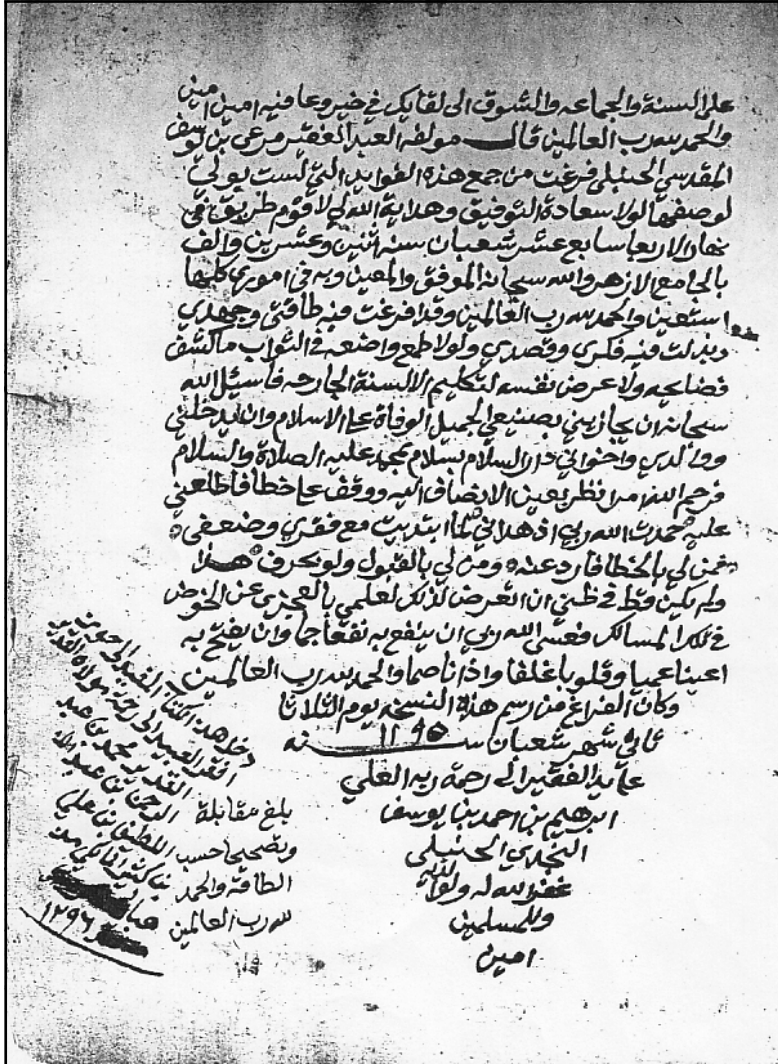 على السنة والجماعه والشوق الى لقايك في خير وعافيه امين امين
والحمد لله رب العالمين قال مولفه العبد الفقير مرعى بن يوسف
المقدسي الحنبلي فرغت من جمع هذه الفوايد التي لست بولي
لوصفها لولا سعادة التوفيق وهداية الله لي لاقوم طريق في
نهار الاربعا سابع عشر شعبان سنه اثنين وعشرين والف
بالجامع الازهر والله سبحانه الموفق والمعين وبه في اموري كلها
استعين والحمد لله رب العالمين وقد افرغت فيه طاقتي وجهدي
وبذلت فيه فكري وقصدي ولولا طمع واضعه في الثواب ما كشف
فضايحه ولا عرض نفسه لتكليم الالسنة الجارحه فاسئل الله
سبحانه ان يجازيني بصنيعي الجميل الوفاة على الاسلام وان يدخلني
ووالدي واخواني دار السلام بسلام بمحمد عليه الصلاة والسلام
فرحم الله امرا نظر بعين الانصاف اليه ووقف على خطا فاطلعني
عليه حمدت الله ربي اذ هداني لما ابتديت مع فقري وضعفي
فمن لي بالخطا فارد عنه ومن لي بالقبول ولو بحرف هذا
ولم يكن قط في ظني ان اتعرض لذلك لعلمي بالعجز عن الخوض
في تلك المسالك فعسى الله ربي ان ينفع به نفعا جما وان يفتح به
اعينا عميا وقلوبا غلفا واذانا صما والحمد لله رب العالمين
وكان الفراغ من رسم هذه النسخه يوم الثلاثا
ثاني شهر شعبان سنه ١٢٩٥
على يد الفقير الى رحمة ربه العلي
ابرهيم بن احمد بن يوسف
النجدي الحنبلي
غفر الله له ولوالديه
وللمسلمين
امين
بلغ مقابلة
وتصحيحا حسب
الطاقة والحمد
لله رب العالمين
دخل هذا الكتاب المفيد في حوزة
افقر العبيد الى رحمة مولاه القدير
القدير محمد بن عبد
الرحمن بن عبد الله
اللطيف بن علي
١٢٩٦